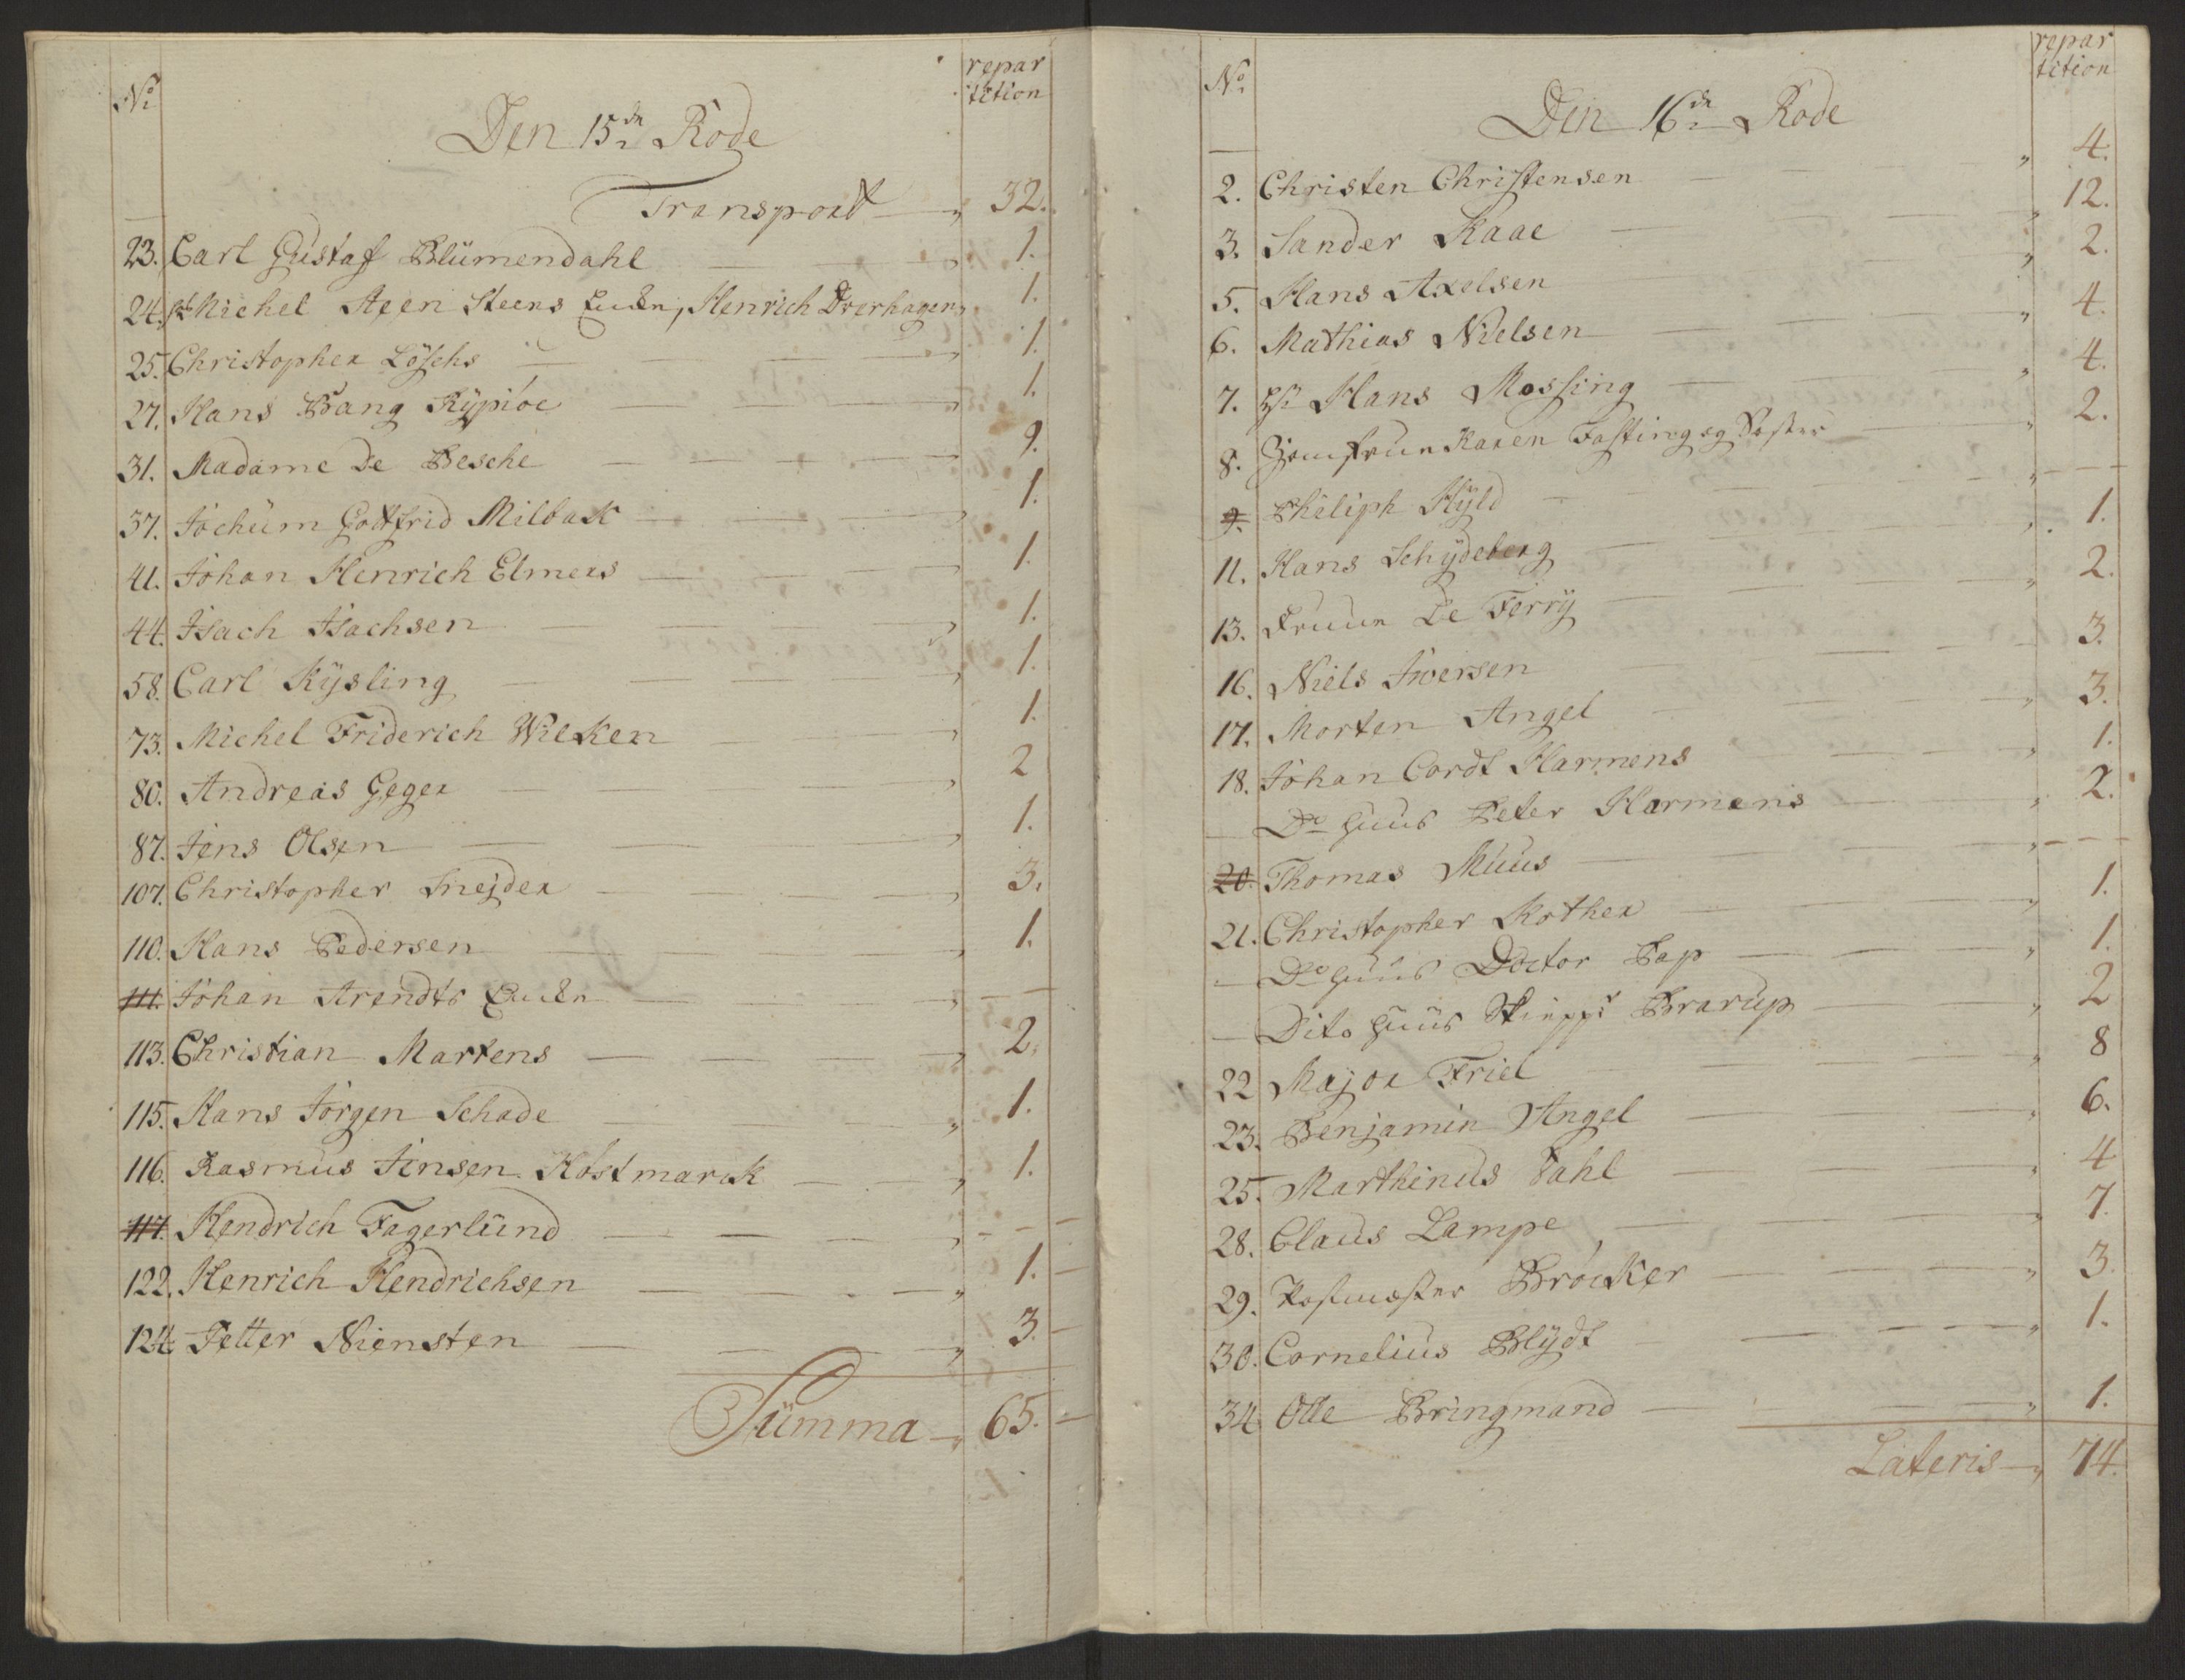 No repar
tition
Den 15de Rode
Transport „ 32.
23. Carl Gustaf Blümendahl „ 1.
24. Michel Steens Enke, Henrich Overhagen „ 1.
25. Christopher Löschs „ 1.
27. Hans Bang Kÿpiöe „ 1.
31. Madame De Besche „ 9.
37. Jochüm Gottfrid Milbak „ 1.
41. Johan Henrich Elmers „ 1.
44. Isach Isachsen „ 1.
58. Carl Kÿsling „ 1.
73. Michel Friderich Wilken „ 1.
80. Andreas Geger „ 2
87. Jens Olsen „ 1.
107. Christopher Snejder „ 3.
110. Hans Pedersen „ 1.
111. Johan Arendts Enke „ – –
113. Christian Martens „ 2.
115. Hans Jörgen Schade „ 1.
116. Rasmus Jensen Kostmarck „ 1.
117. Hendrich Fagerlünd „ – –
122. Henrich Hendrichsen „ 1. –
124. Petter Niensten „ 3. –
Sümma „ 65. –
No repar
tition
Den 16de Rode
2. Christen Christensen „ 4.
3. Sander Kaae „ 12.
5. Hans Axelsen „ 2.
6. Mathias Nielsen „ 4.
7. Hr Hans Mossing „ 4.
8. Jomfrue Karen Fasting og Søster „ 2.
9. Philiph Hÿld „ – –
11. Hans Schÿdeberg „ 1.
13. Fruue De Ferrÿ „ 2.
16. Niels Iwersen 3.
17. Morten Angel „ 3.
18. Johan Cordt Harmens „ 1.
Do Huus Peter Harmens „ 2.
20. Thomas Müus „ – –
21. Christopher Rother „ 1.
Do Huus Doctor Pap „ 1.
Dito Huus Skippr Brarüp „ 2
22 Major Friel „ 8
23. Benjamin Angel „ 6.
25. Marthinus Dahl „ 4
28. Claus Lampe „ 7.
29. Postmester Bröcker „ 3.
30. Cornelius Blÿdt „ 1.
34 Olle Bringmand „ 1.
Lateris „ 74.